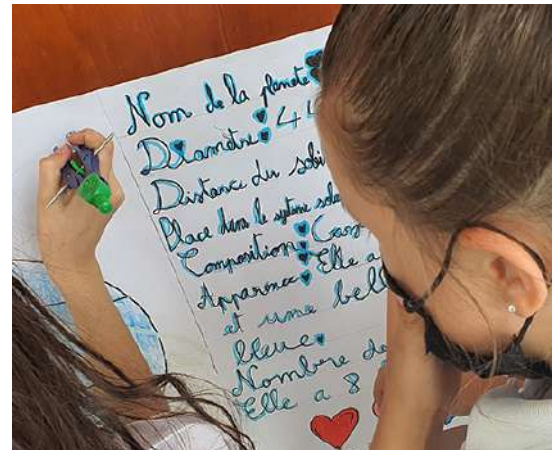 Nom de la planete
Diametre
Distance du
Place dans le système
Composition:
Apparence Elle a
et une
bleue
Nombre de
Elle a 8